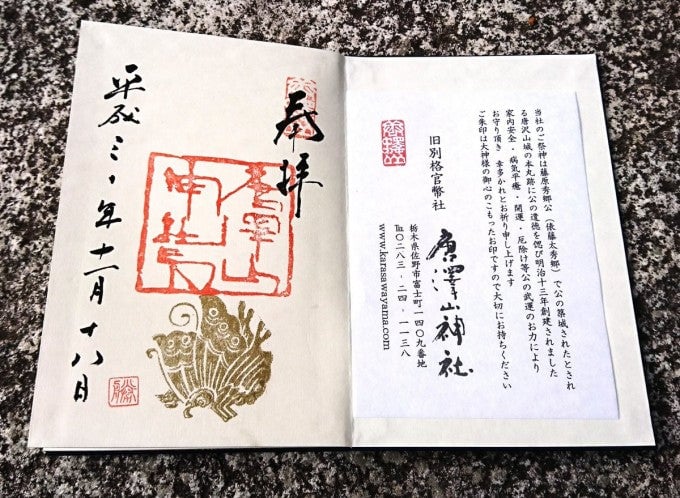 当社のご祭神は藤原秀郷公（俵藤太秀郷）で公の築城されたとされ
る唐沢山城の本丸跡に公の遺徳を偲び明治十三年創建されました
家内安全・病気平癒・開運・厄除け等公の武運のお力により
お守り頂き　幸多かれとお祈り申し上げます
ご朱印は大神様の御心のこもったお印ですので大切にお持ちください
旧別格官幣社
唐澤山神社
栃木県佐野市富士町一四〇九番地
℡〇二八三‐二四‐一一三八
www.karasawayama.com
奉拝
唐澤山
神社
平成三十年十一月十八日